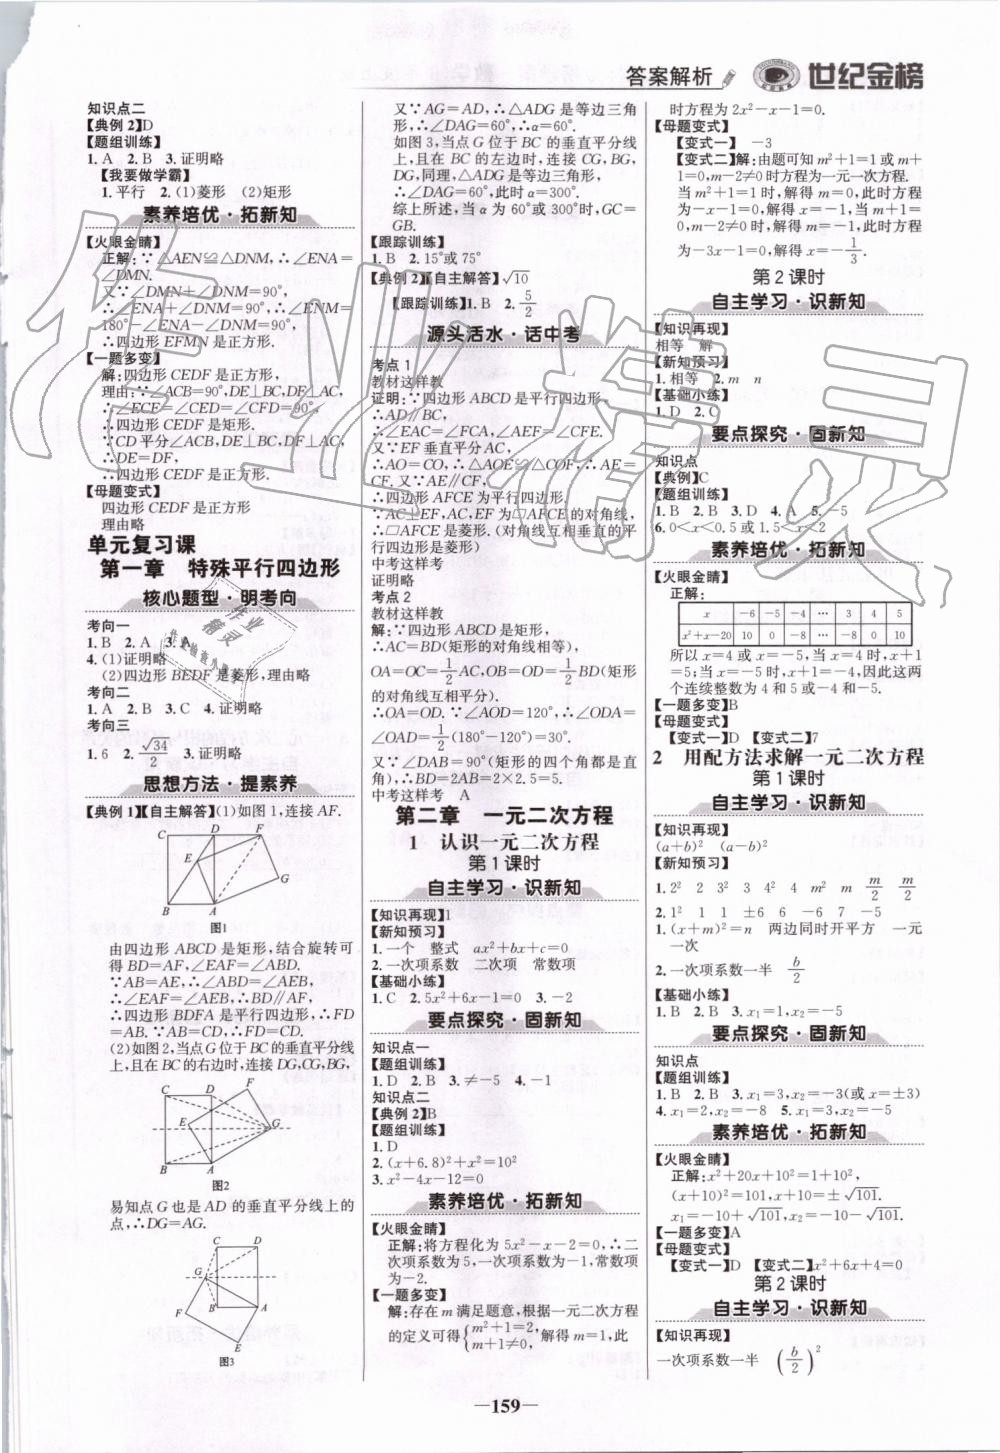 答案解析
世纪金榜
知识点二
【典例2】D
【题组训练】
1. A  2. B  3. 证明略
【我要做学霸】
1. 平行  2. (1)菱形  (2)矩形
素养培优·拓新知
【火眼金睛】
正解:∵△AEN≌△DNM,∴∠ENA=
∠DMN.
又∵∠DMN+∠DNM=90°,
∴∠ENA+∠DNM=90°,∴∠ENM=
180°-∠ENA-∠DNM=90°.
∴四边形EFMN是矩形.
【一题多变】
解:四边形CEDF是正方形,
理由:∵∠ACB=90°,DE⊥BC,DF⊥AC,
∴∠ECF=∠CED=∠CFD=90°.
∴四边形CEDF是矩形.
∵CD平分∠ACB,DE⊥BC,DF⊥AC,
∴DE=DF,
∴四边形CEDF是正方形.
【母题变式】
四边形CEDF是正方形
理由略
单元复习课
第一章 特殊平行四边形
核心题型·明考向
考向一
1. B  2. A  3. A
4. (1)证明略
(2)四边形BEDF是菱形,理由略
考向二
1. A  2. B  3. C  4. 证明略
考向三
1. 6  2. √34/2  3. 证明略
思想方法·提素养
【典例1】【自主解答】(1)如图1,连接AF.
C D F
E
G
B A
图1
由四边形ABCD是矩形,结合旋转可
得BD=AF,∠EAF=∠ABD.
∵AB=AE,∴∠ABD=∠AEB,
∴∠EAF=∠AEB,∴BD∥AF,
∴四边形BDFA是平行四边形,∴FD
=AB.∵AB=CD,∴FD=CD.
(2)如图2,当点G位于BC的垂直平分线
上,且在BC的右边时,连接DG,CG,BG,
C D F
E G
B A
图2
易知点G也是AD的垂直平分线上的
点,∴DG=AG.
C D
G
B A
F
E
图3
又∵AG=AD,∴△ADG是等边三角
形,∴∠DAG=60°,∴α=60°.
如图3,当点G位于BC的垂直平分线
上,且在BC的左边时,连接CG,BG,
DG,同理,△ADG是等边三角形,
∴∠DAG=60°,此时α=300°.
综上所述,当α为60°或300°时,GC=
GB.
【跟踪训练】
1. B  2. 15°或75°
【典例2】【自主解答】√10
【跟踪训练】1. B  2. 5/2
源头活水·话中考
考点1
教材这样教
证明:∵四边形ABCD是平行四边形,
∴AD∥BC,
∴∠EAC=∠FCA,∠AEF=∠CFE.
又∵EF垂直平分AC,
∴AO=CO,∴△AOE≌△COF,∴AE=
CF.又∵AE∥CF,
∴四边形AFCE为平行四边形.
∵AC⊥EF,AC,EF为□AFCE的对角线,
∴□AFCE是菱形.(对角线互相垂直的平
行四边形是菱形)
中考这样考
证明略
考点2
教材这样教
解:∵四边形ABCD是矩形,
∴AC=BD(矩形的对角线相等),
OA=OC=1/2AC,OB=OD=1/2BD(矩形
的对角线互相平分).
∴OA=OD.∵∠AOD=120°,∴∠ODA=
∠OAD=1/2(180°-120°)=30°.
又∵∠DAB=90°(矩形的四个角都是直
角),∴BD=2AB=2×2.5=5.
中考这样考  A
第二章 一元二次方程
1 认识一元二次方程
第1课时
自主学习·识新知
【知识再现】1
【新知预习】
1. 一个  整式  ax²+bx+c=0
2. 一次项系数  二次项  常数项
【基础小练】
1. C  2. 5x²+6x-1=0  3. -2
要点探究·固新知
知识点一
【题组训练】
1. D  2. B  3. ≠-5  4. -1
知识点二
【典例2】B
【题组训练】
1. D
2. (x+6.8)²+x²=10²
3. x²-4x-12=0
素养培优·拓新知
【火眼金睛】
正解:将方程化为5x²-x-2=0,∴二
次项系数为5,一次项系数为-1,常数项
为-2.
【一题多变】
解:存在m满足题意,根据一元二次方程
的定义可得{m²+1=2, m+1≠0, 解得m=1,此
时方程为2x²-x-1=0.
【母题变式】
【变式一】 -3
【变式二】解:由题可知m²+1=1或m+
1=0,m-2≠0时方程为一元一次方程.
当m²+1=1时,解得m=0,此时方程
为-x-1=0,解得x=-1,当m+1=
0,m-2≠0时,解得m=-1,此时方程
为-3x-1=0,解得x=-1/3.
第2课时
自主学习·识新知
【知识再现】
相等  解
【新知预习】
1. 相等  2. m  n
【基础小练】
1. D  2. C
要点探究·固新知
知识点
【典例】C
【题组训练】
1. B  2. B  3. D  4. A  5. -5
6. 0<x<0.5或1.5<x<2
素养培优·拓新知
【火眼金睛】
正解:
x -6 -5 -4 … 3 4 5
x²+x-20 10 0 -8 … -8 0 10
所以x=4或x=-5,当x=4时,x+1
=5;当x=-5时,x+1=-4,因此这两
个连续整数为4和5或-4和-5.
【一题多变】B
【母题变式】
【变式一】D 【变式二】7
2 用配方法求解一元二次方程
第1课时
自主学习·识新知
【知识再现】
(a+b)²  (a-b)²
【新知预习】
1. 2²  2  3²  3  4²  4  m²  m  m/2  m/2
2. 1²  1  1  ±6  6  -6  7  -5
1. (x+m)²=n  两边同时开平方  一元
一次
2. 一次项系数一半  b/2
【基础小练】
1. B  2. B  3. x₁=1,x₂=-5
要点探究·固新知
知识点
【题组训练】
1. B  2. B  3. x₁=3,x₂=-3(或x=±3)
4. x₁=2,x₂=-8  5. x₁=3,x₂=-5
素养培优·拓新知
【火眼金睛】
正解:x²+20x+10²=1+10²,
(x+10)²=101,x+10=±√101,
x₁=-10+√101,x₂=-10-√101.
【一题多变】A
【母题变式】
【变式一】D 【变式二】x²+6x+4=0
第2课时
自主学习·识新知
【知识再现】
一次项系数一半  (b/2)²
—159—
作业精灵